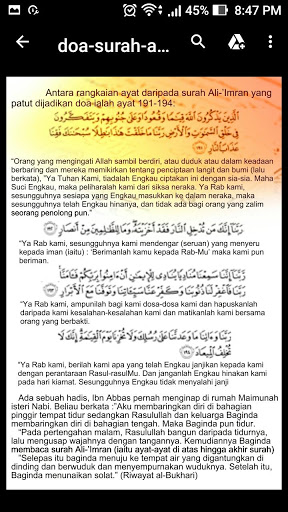 8:47 PM
doa-surah-a...
Antara rangkaian ayat daripada surah Ali-'Imran yang
patut dijadikan doa ialah ayat 191-194:
الَّذِينَ يَذْكُرُونَ اللَّهَ قِيَامًا وَقُعُودًا وَعَلَىٰ جُنُوبِهِمْ وَيَتَفَكَّرُونَ
فِي خَلْقِ السَّمَاوَاتِ وَالْأَرْضِ رَبَّنَا مَا خَلَقْتَ هَٰذَا بَاطِلًا سُبْحَانَكَ فَقِنَا
عَذَابَ النَّارِ
"Orang yang mengingati Allah sambil berdiri, atau duduk atau dalam keadaan
berbaring dan mereka memikirkan tentang penciptaan langit dan bumi (lalu
berkata), "Ya Tuhan Kami, tiadalah Engkau ciptakan ini dengan sia-sia. Maha
Suci Engkau, maka peliharalah kami dari siksa neraka. 'Ya Rab kami,
sesungguhnya sesiapa yang Engkau masukkan ke dalam neraka, maka
sesungguhnya telah Engkau hinanya, dan tidak ada bagi orang yang zalim
seorang penolong pun."
رَبَّنَا إِنَّكَ مَن تُدْخِلِ النَّارَ فَقَدْ أَخْزَيْتَهُ وَمَا لِلظَّالِمِينَ مِنْ أَنصَارٍ ١٩٢
"Ya Rab kami, sesungguhnya kami mendengar (seruan) yang menyeru
kepada iman (iaitu) : 'Berimanlah kamu kepada Rab-Mu' maka kami pun
beriman.
رَبَّنَا إِنَّنَا سَمِعْنَا مُنَادِيًا يُنَادِي لِلْإِيمَانِ أَنْ آمِنُوا بِرَبِّكُمْ فَآمَنَّا
رَبَّنَا فَاغْفِرْ لَنَا ذُنُوبَنَا وَكَفِّرْ عَنَّا سَيِّئَاتِنَا وَتَوَفَّنَا مَعَ الْأَبْرَارِ ١٩٣
"Ya Rab kami, ampunilah bagi kami dosa-dosa kami dan hapuskanlah
daripada kami kesalahan-kesalahan kami dan matikanlah kami bersama
orang yang berbakti.
رَبَّنَا وَآتِنَا مَا وَعَدتَّنَا عَلَىٰ رُسُلِكَ وَلَا تُخْزِنَا يَوْمَ الْقِيَامَةِ إِنَّكَ لَا
تُخْلِفُ الْمِيعَادَ ١٩٤
"Ya Rab kami, berilah kami apa yang telah Engkau janjikan kepada kami
dengan perantaraan Rasul-rasulMu. Dan janganlah Engkau hinakan kami
pada hari kiamat. Sesungguhnya Engkau tidak menyalahi janji
Ada sebuah hadis, Ibn Abbas pernah menginap di rumah Maimunah
isteri Nabi. Beliau berkata :"Aku membaringkan diri di bahagian
pinggir tempat tidur sedangkan Rasulullah dan keluarga Baginda
membaringkan diri di bahagian tengah. Maka Baginda pun tidur.
"Pada pertengahan malam, Rasulullah bangun daripada tidurnya,
lalu mengusap wajahnya dengan tangannya. Kemudiannya Baginda
membaca surah Ali-'Imran (iaitu ayat-ayat di atas hingga akhir surah)
"Selepas itu baginda menuju ke tempat air yang digantungkan di
dinding dan berwuduk dan menyempurnakan wuduknya. Setelah itu,
Baginda menunaikan solat." (Riwayat al-Bukhari)